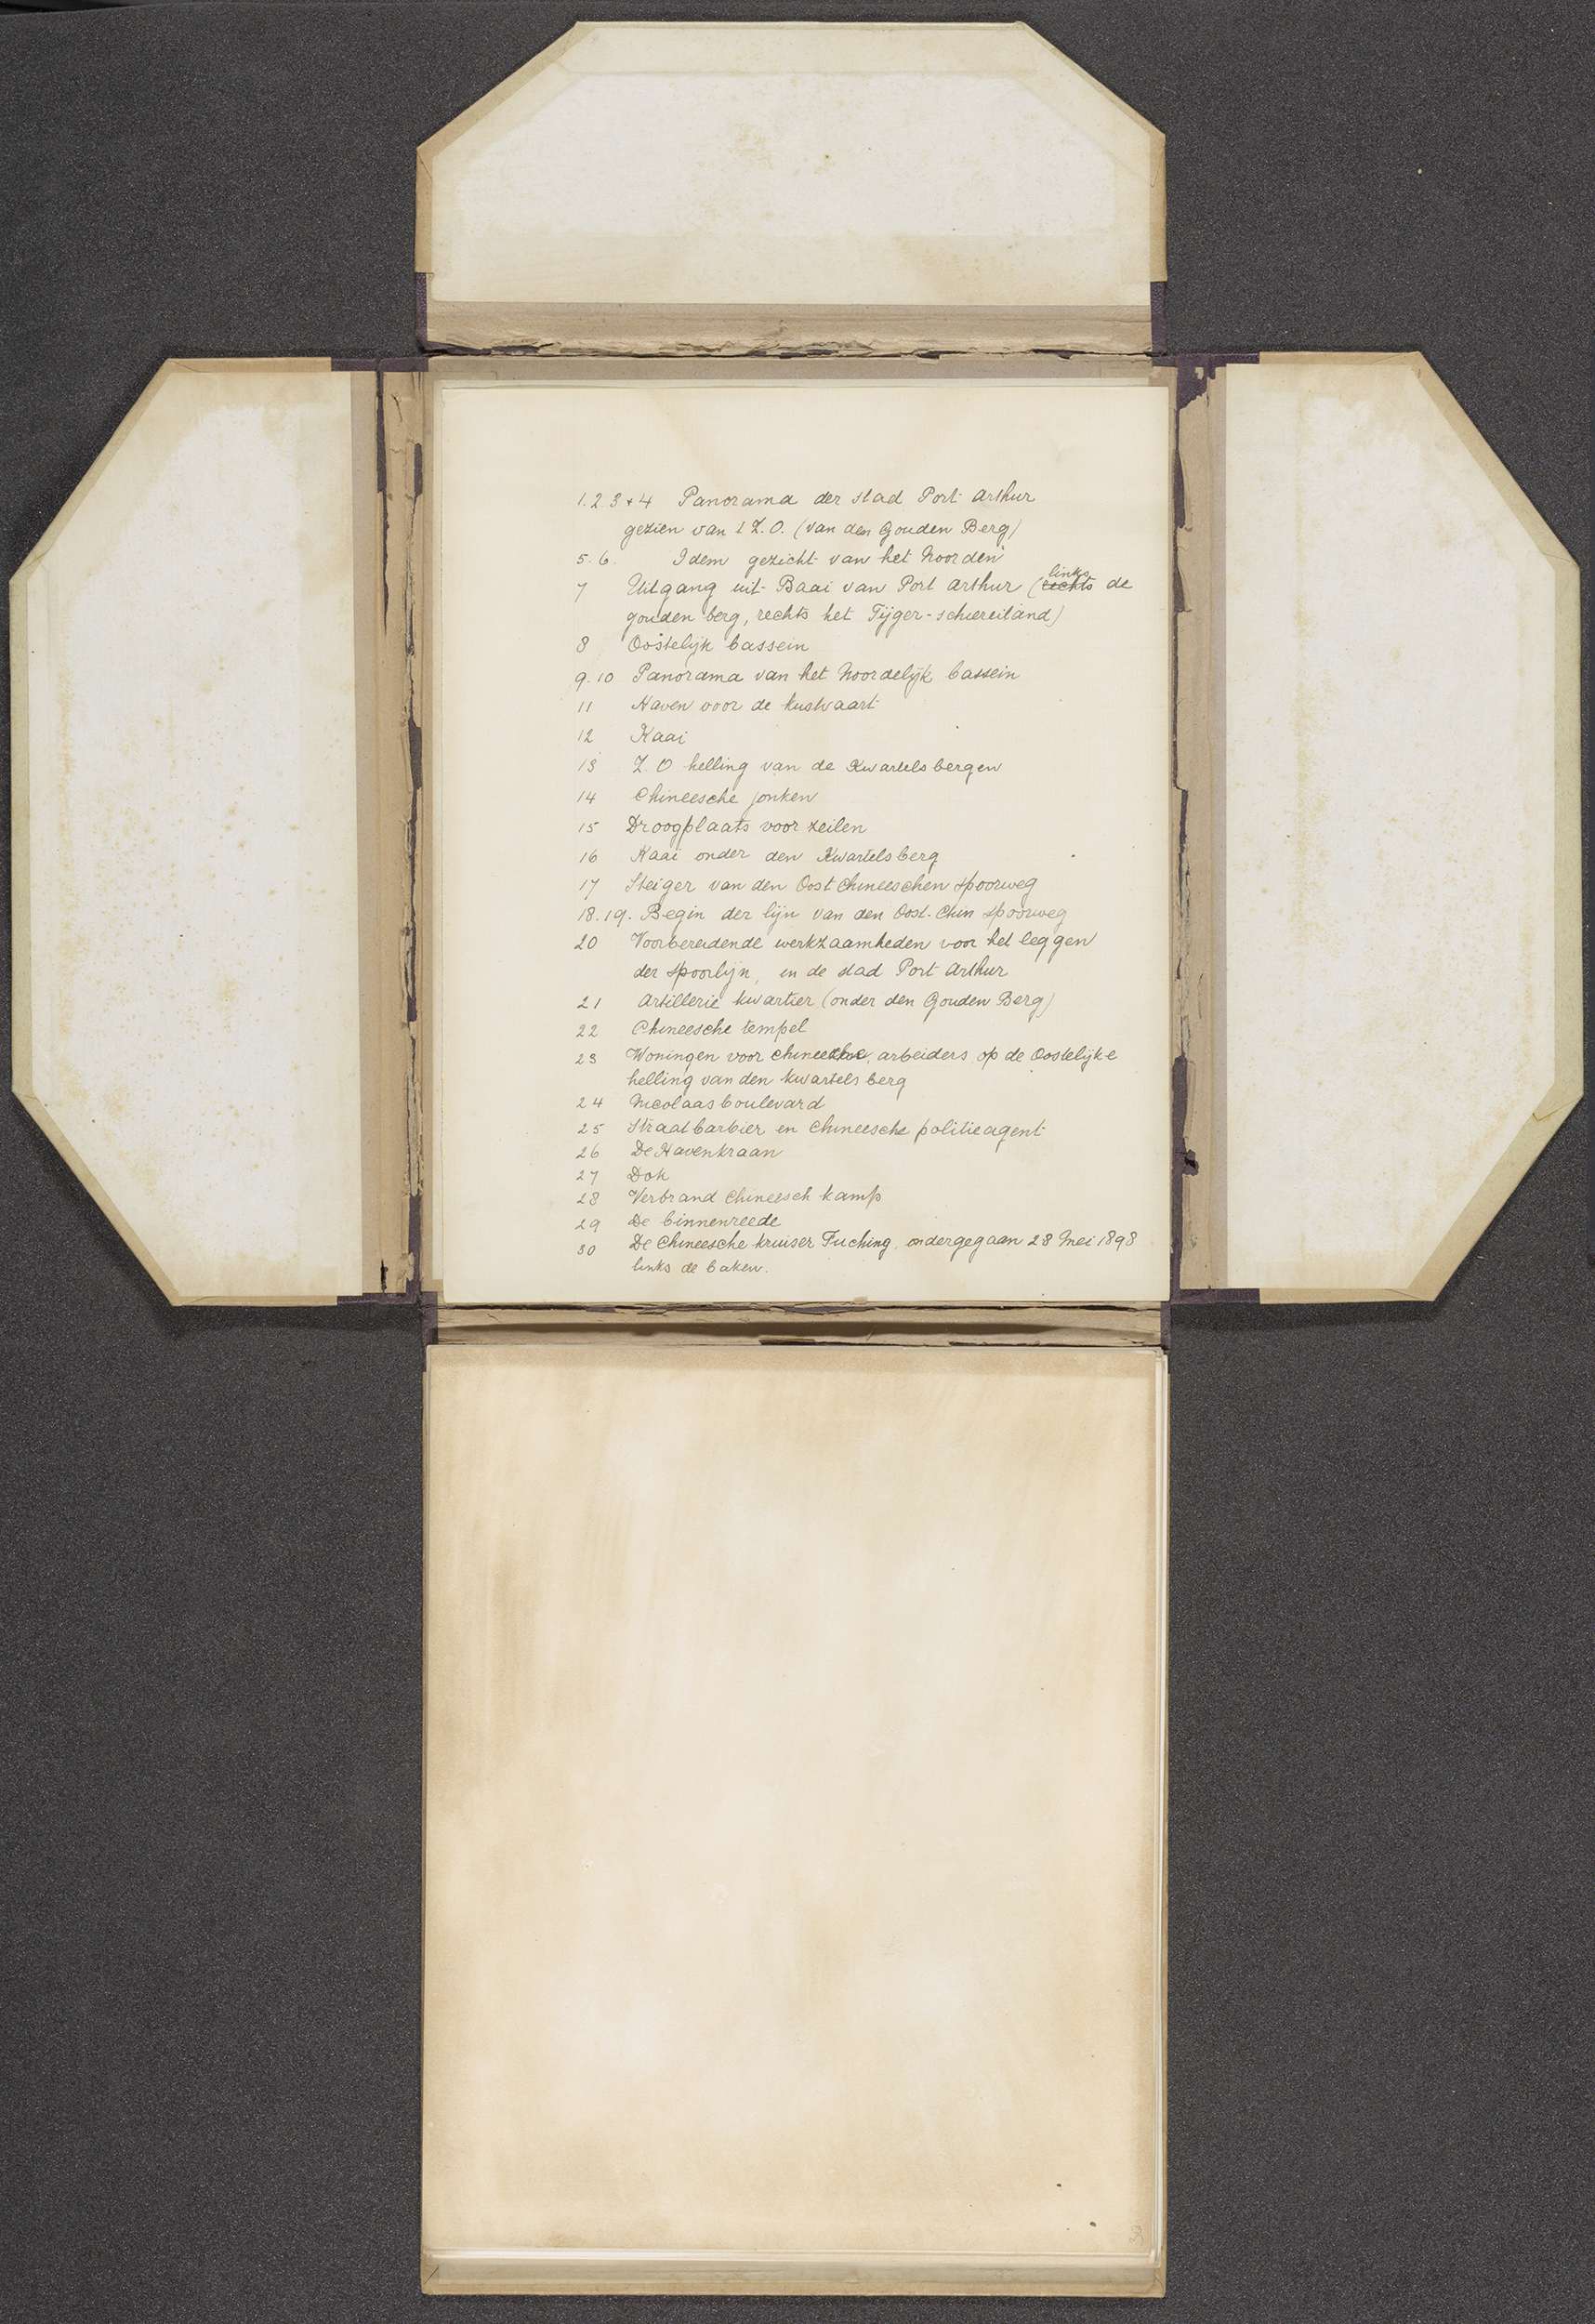 1. 2. 3 + 4 Panorama der stad Port Arthur
gezien van 't Z.O. (van den Gouden Berg)
5. 6. Idem gezicht van het Noorden
7 Uitgang uit Baai van Port Arthur (rechts links de
gouden berg, rechts het Tijger-schiereiland)
8 Oostelijk bassein
9. 10 Panorama van het Noordelijk bassein
11 Haven voor de kustvaart
12 Kaai
13 Z.O helling van de Kwartelsbergen
14 Chineesche jonken
15 Droogplaats voor zeilen
16 Kaai onder den Kwartelsberg
17 Steiger van den Oost Chineeschen spoorweg
18. 19. Begin der lijn van den Oost. Chin spoorweg
20 Voorbereidende werkzaamheden voor het leggen
der spoorlijn, in de stad Port Arthur
21 Artillerie kwartier (onder den Gouden Berg)
22 Chineesche tempel
23 Woningen voor chineesche, arbeiders op de Oostelijke
helling van den kwartels berg
24 Nicolaas boulevard
25 Straatbarbier en Chineesche politieagent
26 De Havenkraan
27 Dok
28 Verbrand Chineesch kamp
29 De binnenreede
30 De Chineesche kruiser Fuching, ondergegaan 28 Mei 1898
links de baken.